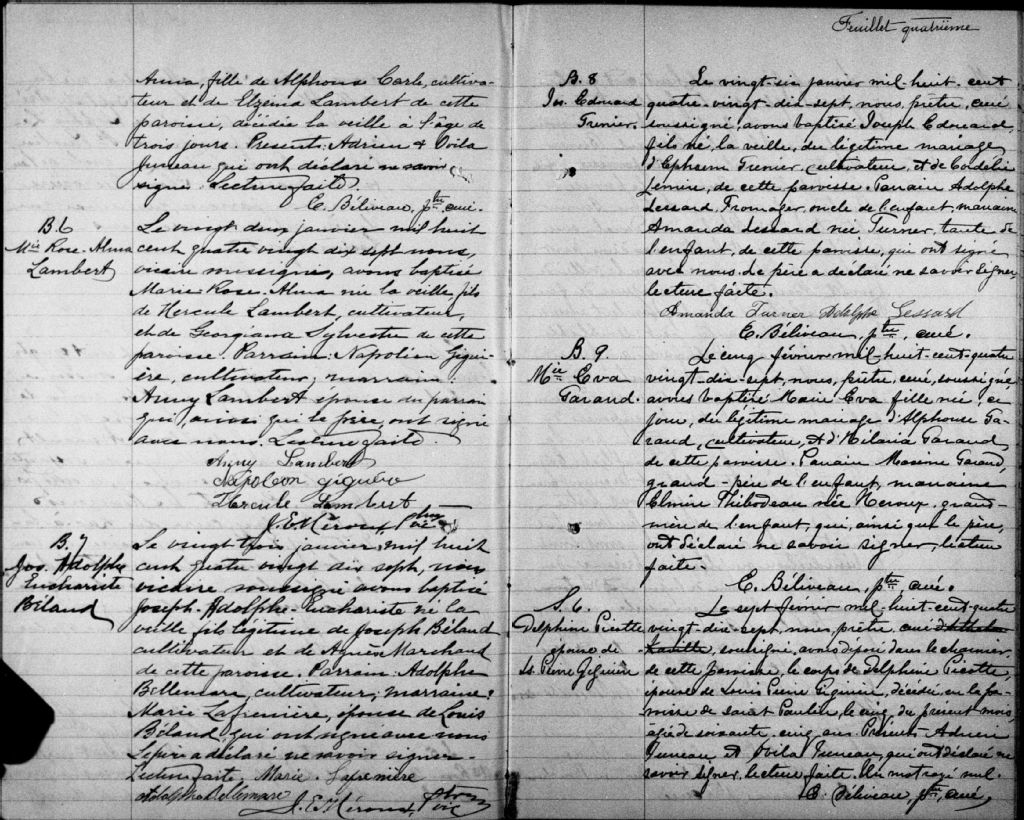 Anna, fille de Alphonse Carle, cultiva-
teur et de Elzéma Lambert de cette
paroisse, décédée la veille à l'âge de
trois jours. Presents: Adrien & Ovila
Juneau qui ont déclaré ne savoir
signer. Lecture faite.
E. Béliveau, ptre, curé.
B. 6
Mie Rose-Alma
Lambert
Le vingt deux janvier mil huit
cent quatre vingt dix sept nous,
vicaire soussigné, avons baptisé
Marie-Rose-Alma née la veille, fils
de Hercule Lambert, cultivateur,
et de Georgiana Sylvestre de cette
paroisse. Parrain: Napoléon Giguè-
ère, cultivateur; marraine:
Anny Lambert épouse du parrain
qui, ainsi que le père, ont signé
avec nous. Lecture faite.
Anny Lambert
Napoleon Giguère
Hercule Lambert
J. E. Héroux, Ptre
vic
B. 7
Jos. Adolphe
Euchariste
Béland
Le vingt trois janvier, mil huit
cent quatre vingt dix sept, nous
vicaire soussigné avons baptisé
Joseph-Adolphe-Euchariste né la
veille fils légitime de Joseph Béland
cultivateur et de Agnès Marchand
de cette paroisse. Parrain: Adolphe
Bellemare, cultivateur; marraine:
Marie Lafrenière, épouse de Louis
Béland, qui ont signé avec nous
Le père a déclaré ne savoir signer.
Lecture faite. Marie Lafrenière
Adolphe Bellemare
J. E. Héroux, Ptre
vic
Feuillet quatrième
B. 8
Jos. Edouard
Trenier.
Le vingt-six janvier mil-huit-cent
quatre-vingt-dix-sept, nous, prêtre, curé
soussigné, avons baptisé Joseph Edouard,
fils né, la veille, du légitime mariage
d'Ephrem Trenier, cultivateur, et de Cordélie
Lemire, de cette paroisse. Parrain Adolphe
Lessard, Fromager, oncle de l'enfant, marraine
Amanda Lessard née Turner, tante de
l'enfant, de cette paroisse, qui ont signé
avec nous. Le père a déclaré ne savoir signer,
lecture faite.
Amanda Turner Adolphe Lessard
E. Béliveau, ptre, curé.
B. 9.
Mie Eva
Garand.
Le cinq février mil-huit-cent-quatre
vingt-dix-sept, nous, prêtre, curé, soussigné
avons baptisé Marie Eva fille née, ce
jour, du légitime mariage d'Alphonse Ga-
rand, cultivateur, et d'Hilaria Garand,
de cette paroisse. Parrain Maxime Garand,
grand-père de l'enfant, marraine
Elmire Thibodeau née Heroux, grand-
mère de l'enfant, qui, ainsi que le père,
ont déclaré ne savoir signer, lecture
faite.
E. Béliveau, ptre, curé.
S. 6.
Delphine Picotte
épouse de
Ls Pierre Giguière
Le sept février mil-huit-cent-quatre
vingt-dix-sept, nous, prêtre, curé
soussigné, avons déposé dans le charnier
de cette paroisse, le corps de Delphine Picotte,
épouse de Louis Pierre Giguière, décédée, en la pa-
roisse de saint Paulin, le cinq du présent mois,
agée de soixante, cinq ans. Présents Adrien
Juneau, et Ovila Juneau, qui ont déclaré ne
savoir signer, lecture faite. Un mot rayé nul.
E. Béliveau, ptre, curé.